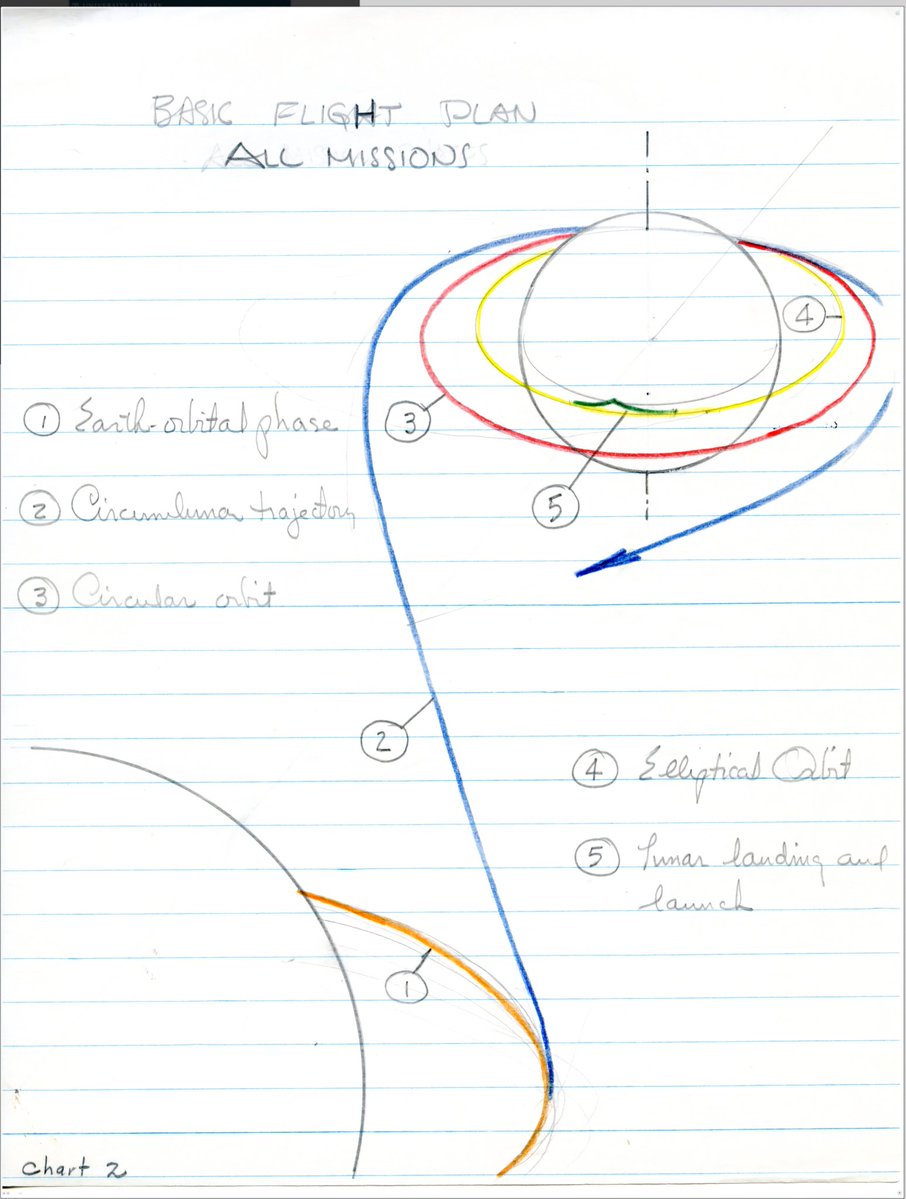 BASIC FLIGHT PLAN
ALL MISSIONS
4
3
5
1 Earth-orbital phase
2 Circumlunar trajectory
3 Circular orbit
2
4 Elliptical Orbit
5 Lunar landing and
launch
1
Chart 2